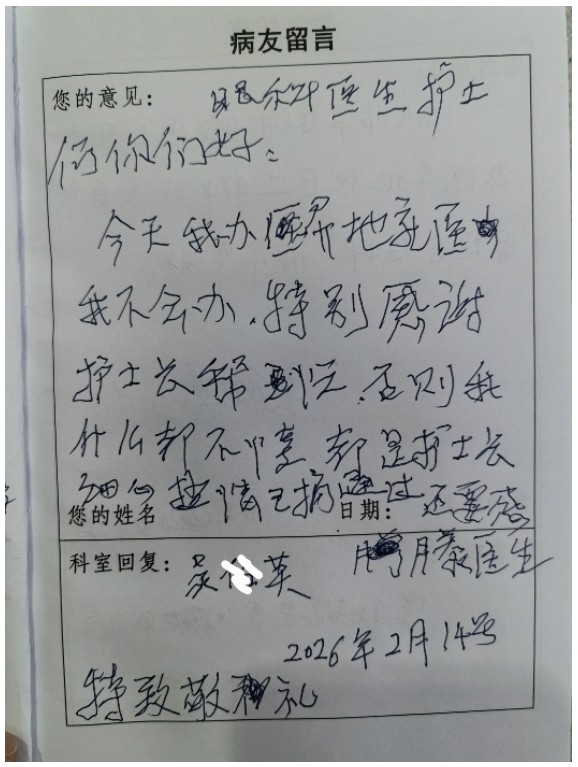 病友留言
您的意见： 眼科医生护士
们你们好：
今天我办 异地就医
我不会办，特别感谢
护士长帮 否则我
什么都不懂 都是护士长
细心 通过 还要感
您的姓名 日期：
科室回复： 英 医生
2026年2月14号
特致敬 礼